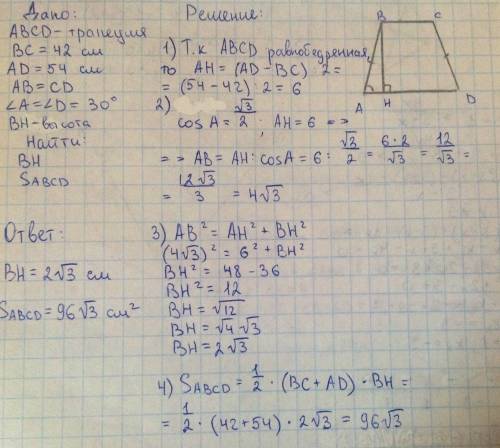 Дано:
ABCD - трапеция
BC = 42 см
AD = 54 см
AB = CD
∠A = ∠D = 30°
BH - высота
Найти:
BH
SABCD
Ответ:
BH = 2√3 см
SABCD = 96√3 см²
Решение:
1) Т.к ABCD равнобедренная,
то AH = (AD - BC) : 2 =
= (54 - 42) : 2 = 6
2) cos A = √3/2 ; AH = 6 =>
=> AB = AH : cos A = 6 : √3/2 = 6·2/√3 = 12/√3 =
= 12√3/3 = 4√3
3) AB² = AH² + BH²
(4√3)² = 6² + BH²
BH² = 48 - 36
BH² = 12
BH = √12
BH = √4 √3
BH = 2√3
4) SABCD = 1/2 · (BC + AD) · BH =
= 1/2 · (42 + 54) · 2√3 = 96√3
B C
A H D